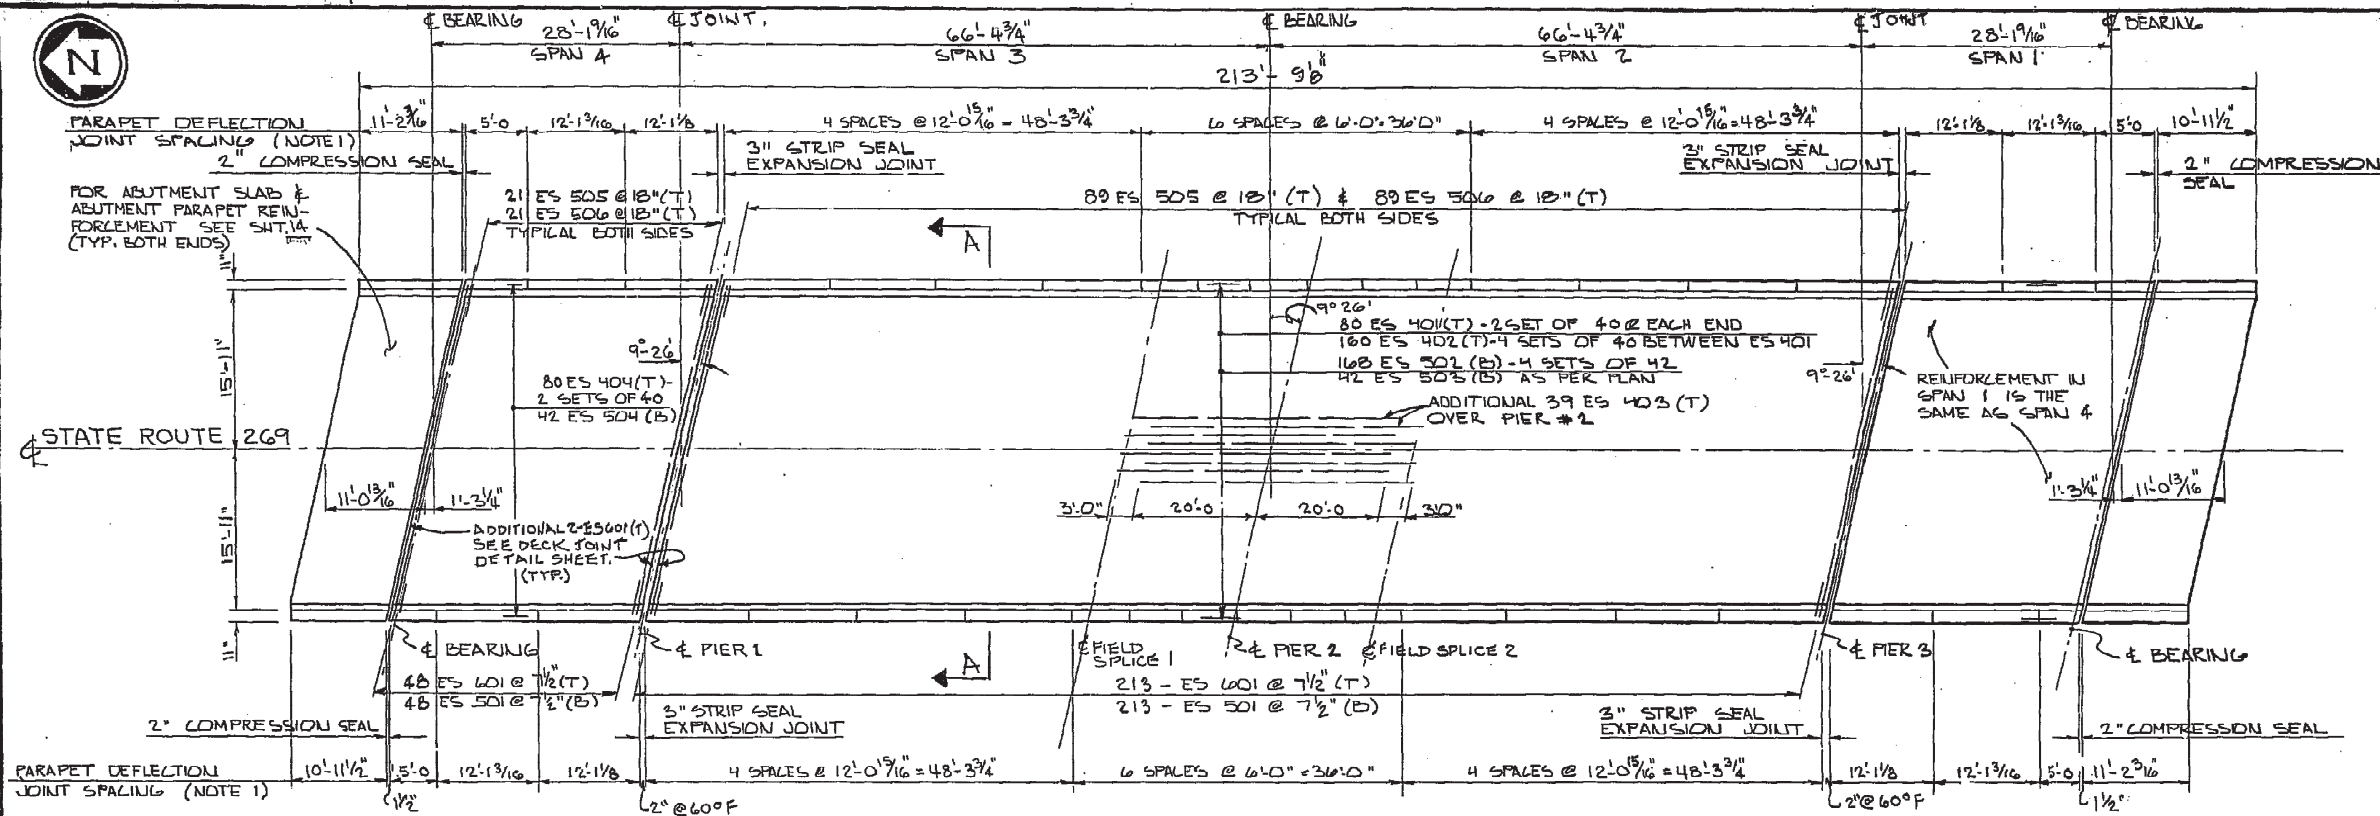 N
℄ BEARING
28'-1 9/16"
SPAN 4
℄ JOINT.
66'-4 3/4"
SPAN 3
℄ BEARING
66'-4 3/4"
SPAN 2
℄ JOINT
28'-1 9/16"
SPAN 1
℄ BEARING
213'-9 1/8"
PARAPET DEFLECTION
JOINT SPACING (NOTE 1)
11'-2 3/16"
5'-0
12'-1 3/16
12'-1 1/8
4 SPACES @ 12'-0 15/16" = 48'-3 3/4"
6 SPACES @ 6'-0" = 36'-0"
4 SPACES @ 12'-0 15/16" = 48'-3 3/4"
12'-1 1/8
12'-1 3/16
5'-0
10'-11 1/2"
2" COMPRESSION SEAL
3" STRIP SEAL
EXPANSION JOINT
3" STRIP SEAL
EXPANSION JOINT
2" COMPRESSION
SEAL
FOR ABUTMENT SLAB &
ABUTMENT PARAPET REIN-
FORCEMENT SEE SHT. 14
(TYP. BOTH ENDS)
21 ES 505 @ 18" (T)
21 ES 506 @ 18" (T)
TYPICAL BOTH SIDES
89 ES 505 @ 18" (T) & 89 ES 506 @ 18" (T)
TYPICAL BOTH SIDES
A
11"
15'-11"
15'-11"
11"
9°-26'
80 ES 404 (T)-
2 SETS OF 40
42 ES 504 (B)
9°26'
80 ES 401 (T) - 2 SET OF 40 @ EACH END
160 ES 402 (T) - 4 SETS OF 40 BETWEEN ES 401
168 ES 502 (B) - 4 SETS OF 42
42 ES 503 (B) AS PER PLAN
ADDITIONAL 39 ES 403 (T)
OVER PIER #2
9°-26'
REINFORCEMENT IN
SPAN 1 IS THE
SAME AS SPAN 4
℄ STATE ROUTE 269
11'-0 13/16"
1'-3 1/4"
3'-0"
20'-0
20'-0
3'-0"
1'-3 1/4"
11'-0 13/16"
ADDITIONAL 2-ES601 (T)
SEE DECK JOINT
DETAIL SHEET.
(TYP.)
℄ BEARING
℄ PIER 1
A
℄ FIELD
SPLICE 1
℄ PIER 2
℄ FIELD SPLICE 2
℄ PIER 3
℄ BEARING
48 ES 601 @ 7 1/2" (T)
48 ES 501 @ 7 1/2" (B)
213 - ES 601 @ 7 1/2" (T)
213 - ES 501 @ 7 1/2" (B)
2" COMPRESSION SEAL
3" STRIP SEAL
EXPANSION JOINT
3" STRIP SEAL
EXPANSION JOINT
2" COMPRESSION SEAL
PARAPET DEFLECTION
JOINT SPACING (NOTE 1)
10'-11 1/2"
5'-0
12'-1 3/16
12'-1 1/8
4 SPACES @ 12'-0 15/16" = 48'-3 3/4"
6 SPACES @ 6'-0" = 36'-0"
4 SPACES @ 12'-0 15/16" = 48'-3 3/4"
12'-1 1/8
12'-1 3/16
5'-0
11'-2 3/16
1 1/2"
2" @ 60°F
2" @ 60°F
1 1/2"